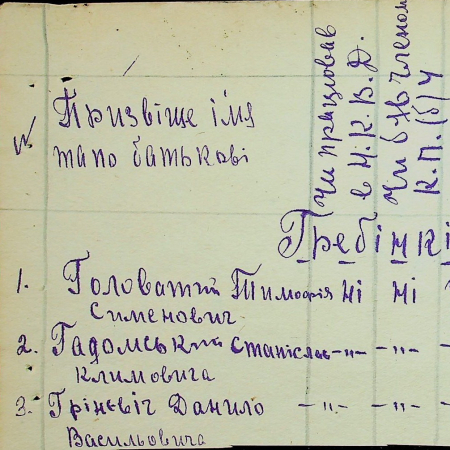 №
Призвіще імя
та по батькові
Чи працював
в Н.К.В.Д.
Чи був членом
К.П.(б)У
Гребінкі
1. Головатий Тимофія ні ні
Сименович
2. Гадомський Станіслав -"- -"-
Климовича
3. Грінєвіч Данило -"- -"-
Васильовича